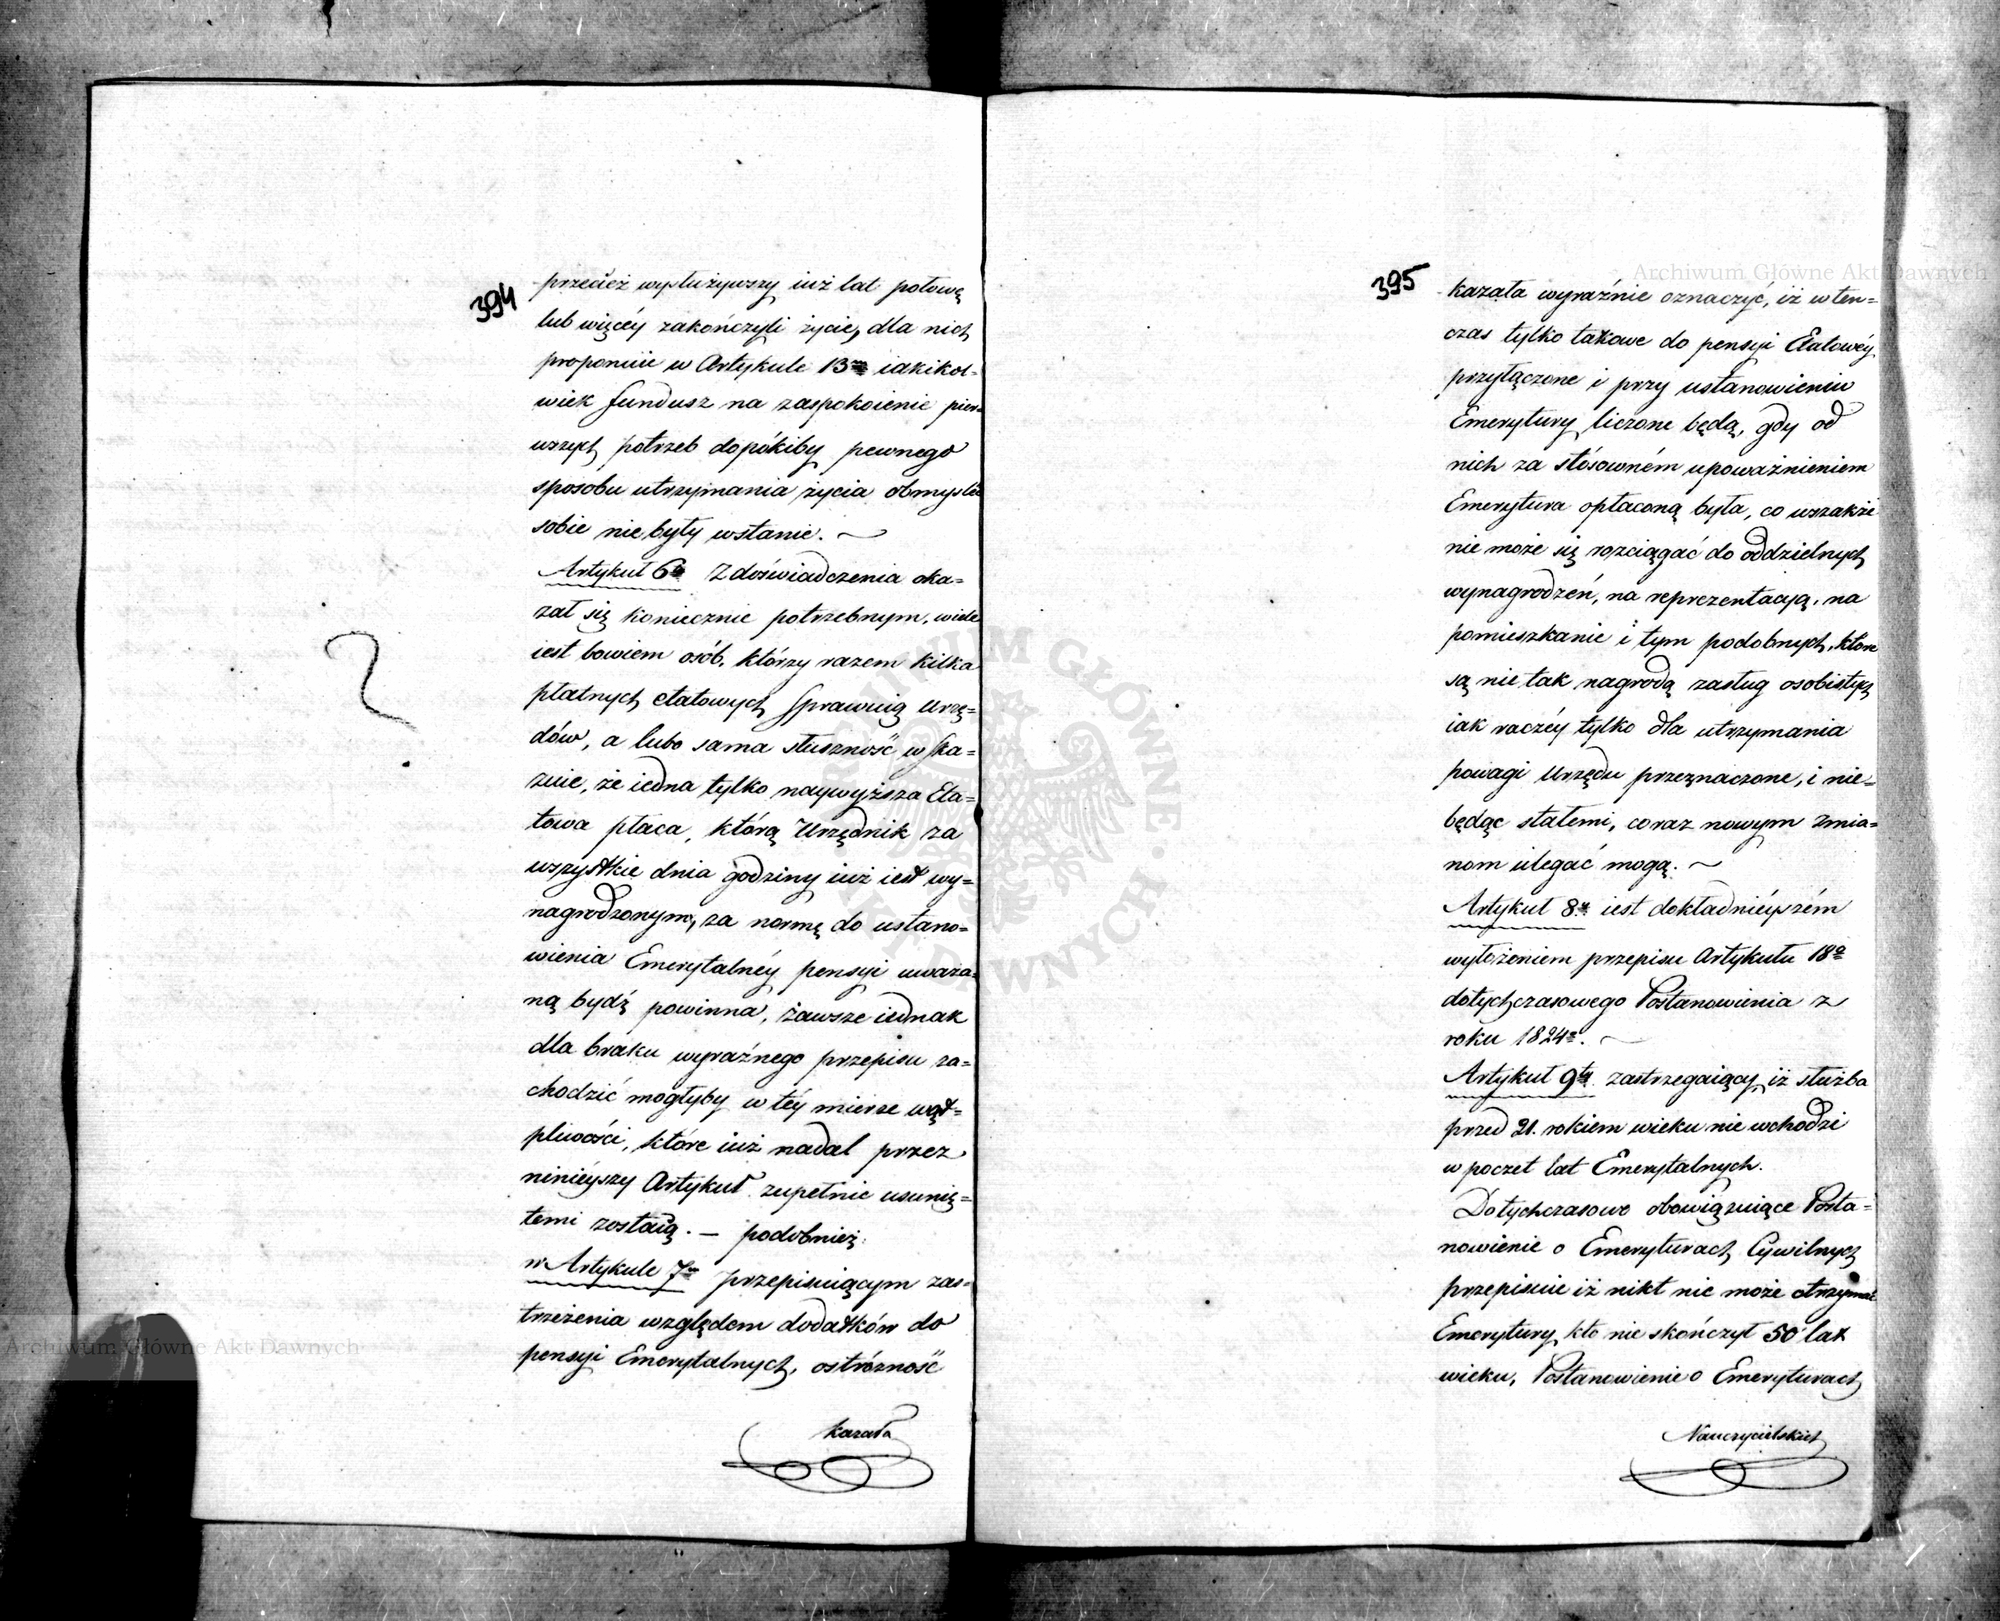 394
przecież wysłużywszy iuż lat połowę
lub więcéy zakończyli życie, dla nich
proponuie w Artykule 13m iakikol=
wiek fundusz na zaspokoienie pier=
wszych potrzeb dopókiby pewnego
sposobu utrzymania życia obmyśleć
sobie nie były wstanie. —
Artykuł 6ty Z doświadczenia oka=
zał się koniecznie potrzebnym, wiele
iest bowiem osób, którzy razem kilka
płatnych etatowych sprawuią Urzę=
dów, a lubo sama słuszność wska=
zuie, że iedna tylko naywyższa Eta=
towa płaca, którą Urzędnik za
wszystkie dnia godziny iuż iest wy=
nagrodzonym, za normę do ustano=
wienia Emerytalnéy pensyi uważa=
ną bydź powinna, zawsze iednak
dla braku wyraźnego przepisu za=
chodzić mogłyby w téy mierze wąt=
pliwości, które iuż nadal przez
ninieyszy Artykuł zupełnie usunię=
temi zostaią. — podobnież
w Artykule 7m przepisuiącym zas=
trzeżenia względem dodatków do
pensyi Emerytalnych, ostrożność
kazała
395
kazała wyraźnie oznaczyć, iż w ten=
czas tylko takowe do pensyi Etatowéy
przyłączone i przy ustanowieniu
Emerytury liczone będą, gdy od
nich za stósowném upoważnieniem
Emerytura opłaconą była, co wszakże
nie może się rozciągać do oddzielnych
wynagrodzeń, na reprezentacyą, na
pomieszkanie i tym podobnych, które
są nie tak nagrodą zasług osobistych
iak raczéy tylko dla utrzymania
powagi Urzędu przeznaczone, i nie=
będąc stałemi, coraz nowym zmia=
nom ulegać mogą. —
Artykuł 8y iest dokładniéyszém
wyłożeniem przepisu Artykułu 18o
dotychczasowego Postanowienia z
roku 1824o. —
Artykuł 9ty zastrzegaiący, iż służba
przed 21. rokiem wieku nie wchodzi
w poczet lat Emerytalnych.
Dotychczasowo obowiązuiące Posta=
nowienie o Emeryturach Cywilnych
przepisuie iż nikt nie może otrzymać
Emerytury, kto nie skończył 50 lat
wieku, Postanowienie o Emeryturach
Nauczycielskich
Archiwum Główne Akt Dawnych
Archiwum Główne Akt Dawnych
ARCHIWUM GŁÓWNE AKT DAWNYCH